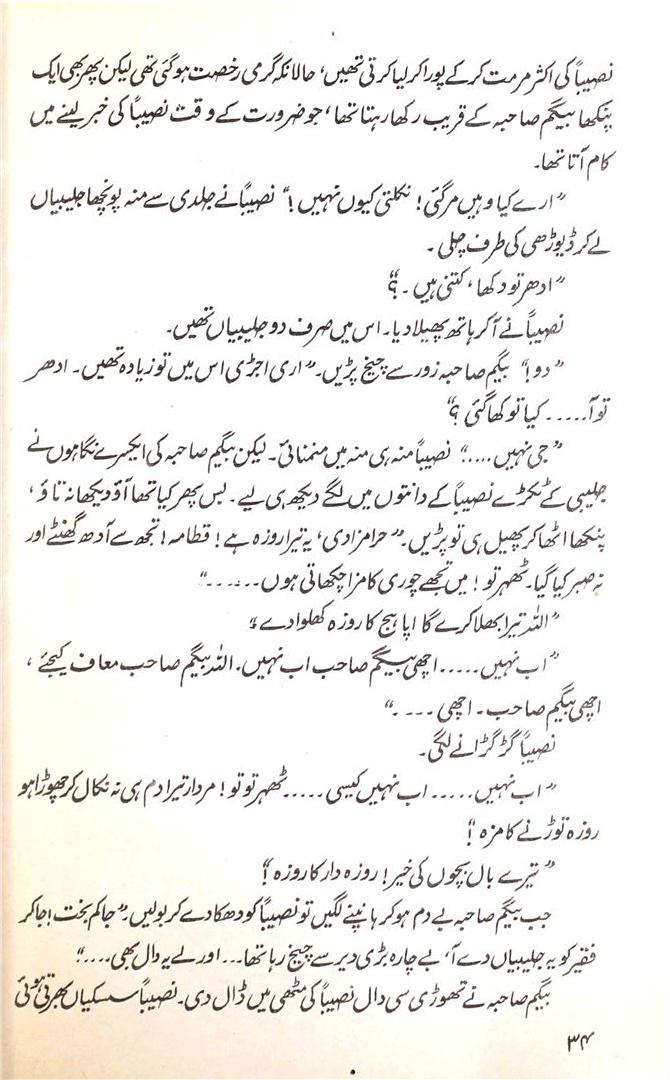 نصیباً کی اکثر مرمت کرکے پورا کر لیا کرتی تھیں، حالانکہ گرمی رخصت ہو گئی تھی لیکن پھر بھی ایک
پنکھا بیگم صاحبہ کے قریب رکھا رہتا تھا، جو ضرورت کے وقت نصیباً کی خبر لینے میں
کام آتا تھا۔
”ارے کیا وہیں مر گئی! نکلتی کیوں نہیں!“ نصیباً نے جلدی سے منہ پونچھا جلیبیاں
لے کر ڈیوڑھی کی طرف چلی۔
”ادھر تو دکھا، کتنی ہیں۔؟“
نصیباً نے آکر ہاتھ پھیلا دیا۔ اس میں صرف دو جلیبیاں تھیں۔
”دو!“ بیگم صاحبہ زور سے چیخ پڑیں۔ ”اری اجڑی اس میں تو زیادہ تھیں۔ ادھر
تو آ..... کیا تو کھا گئی؟“
”جی نہیں....“ نصیباً منہ ہی منہ میں منمنائی۔ لیکن بیگم صاحبہ کی ایکسرے نگاہوں نے
جلیبی کے ٹکڑے نصیباً کے دانتوں میں لگے دیکھ ہی لیے۔ بس پھر کیا تھا آؤ دیکھا نہ تاؤ،
پنکھا اٹھا کر پھیل ہی تو پڑیں۔ ”حرامزادی، یہ تیرا روزہ ہے! قطامہ! تجھ سے آدھ گھنٹے اور
نہ صبر کیا گیا۔ ٹھہر تو! میں تجھے چوری کا مزا چکھاتی ہوں......“
”اللہ تیرا بھلا کرے گا اپاہج کا روزہ کھلوا دے“
”اب نہیں..... اچھی بیگم صاحب اب نہیں۔ اللہ بیگم صاحب معاف کیجئے،
اچھی بیگم صاحب۔ اچھی ....“
نصیباً گڑگڑانے لگی۔
”اب نہیں..... اب نہیں کیسی ..... ٹھہر تو تو! مردار تیرا دم ہی نہ نکال کر چھوڑا ہو
روزہ توڑنے کا مزہ!“
”تیرے بال بچوں کی خیر! روزہ دار کا روزہ!“
جب بیگم صاحبہ بے دم ہو کر ہانپنے لگیں تو نصیباً کو دھکا دے کر بولیں۔ ”جا کم بخت! جا کر
فقیر کو یہ جلیبیاں دے آ، بے چارہ بڑی دیر سے چیخ رہا تھا... اور لے یہ دال بھی....“
بیگم صاحبہ نے تھوڑی سی دال نصیباً کی مٹھی میں ڈال دی۔ نصیباً سسکیاں بھرتی ہوئی
۳۴